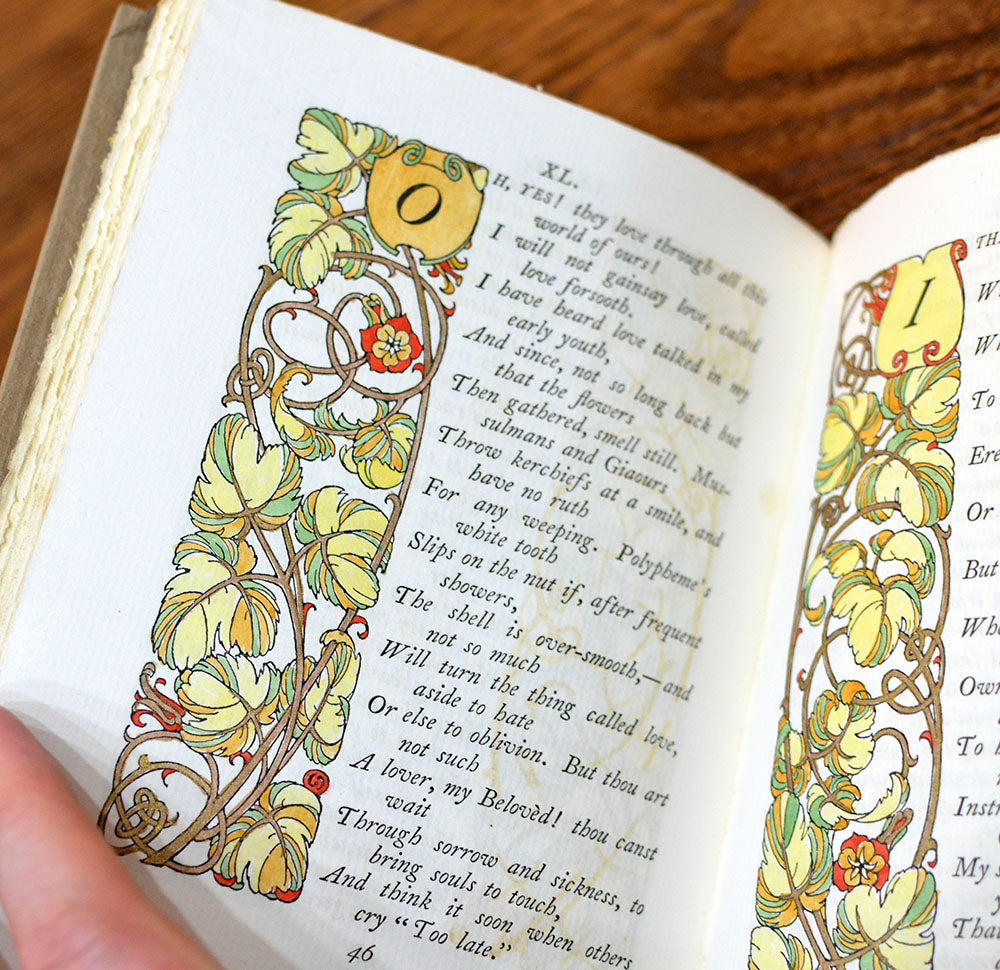 XL.
OH, YES! they love through all this
world of ours!
I will not gainsay love, called
love forsooth.
I have heard love talked in my
early youth,
And since, not so long back but
that the flowers
Then gathered, smell still. Mus-
sulmans and Giaours
Throw kerchiefs at a smile, and
have no ruth
For any weeping. Polypheme's
white tooth
Slips on the nut if, after frequent
showers,
The shell is over-smooth,—and
not so much
Will turn the thing called love,
aside to hate
Or else to oblivion. But thou art
not such
A lover, my Belovèd! thou canst
wait
Through sorrow and sickness, to
bring souls to touch,
And think it soon when others
cry "Too late."
46
I
To
Or
But
Own
To
My